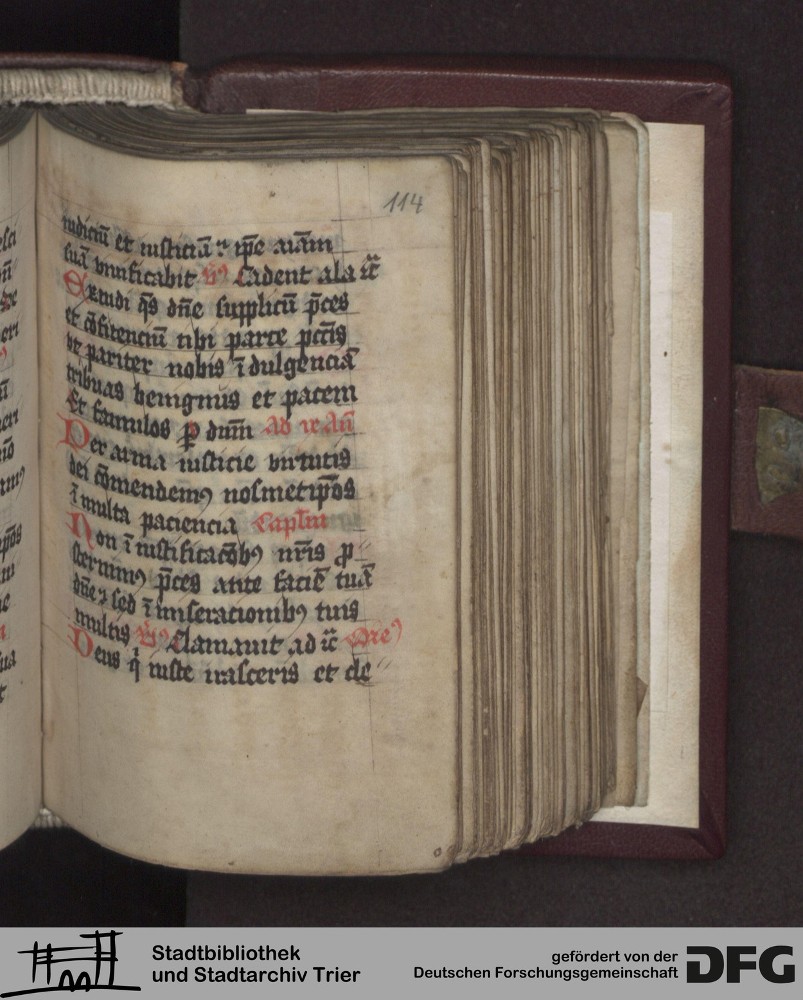 114
iudiciū et iusticiā ip̄e aiām
suā viuificabit v̄ Cadent a la t̄c
Exaudi qs dn̄e supplicū p̄ces
et ꝯfitenciū tibi parce pcc̄is
vt pariter nobis īdulgenciā
tribuas benignus et pacem
Et famulos ꝑ dnm̄ Ad ix An̄
Per arma iusticie virtutis
dei cōmendemꝰ nosmetip̄os
ī multa paciencia Caplm̄
Non ī iustificacōibꝰ nr̄is ꝓ
sternimꝰ p̄ces ante faciē tuā
dn̄e sed ī miseracionibꝰ tuis
multis v̄ Clamauit ad t̄c Ore
Deus q̇ iuste irasceris et cle
Stadtbibliothek
und Stadtarchiv Trier
gefördert von der
Deutschen Forschungsgemeinschaft
DFG